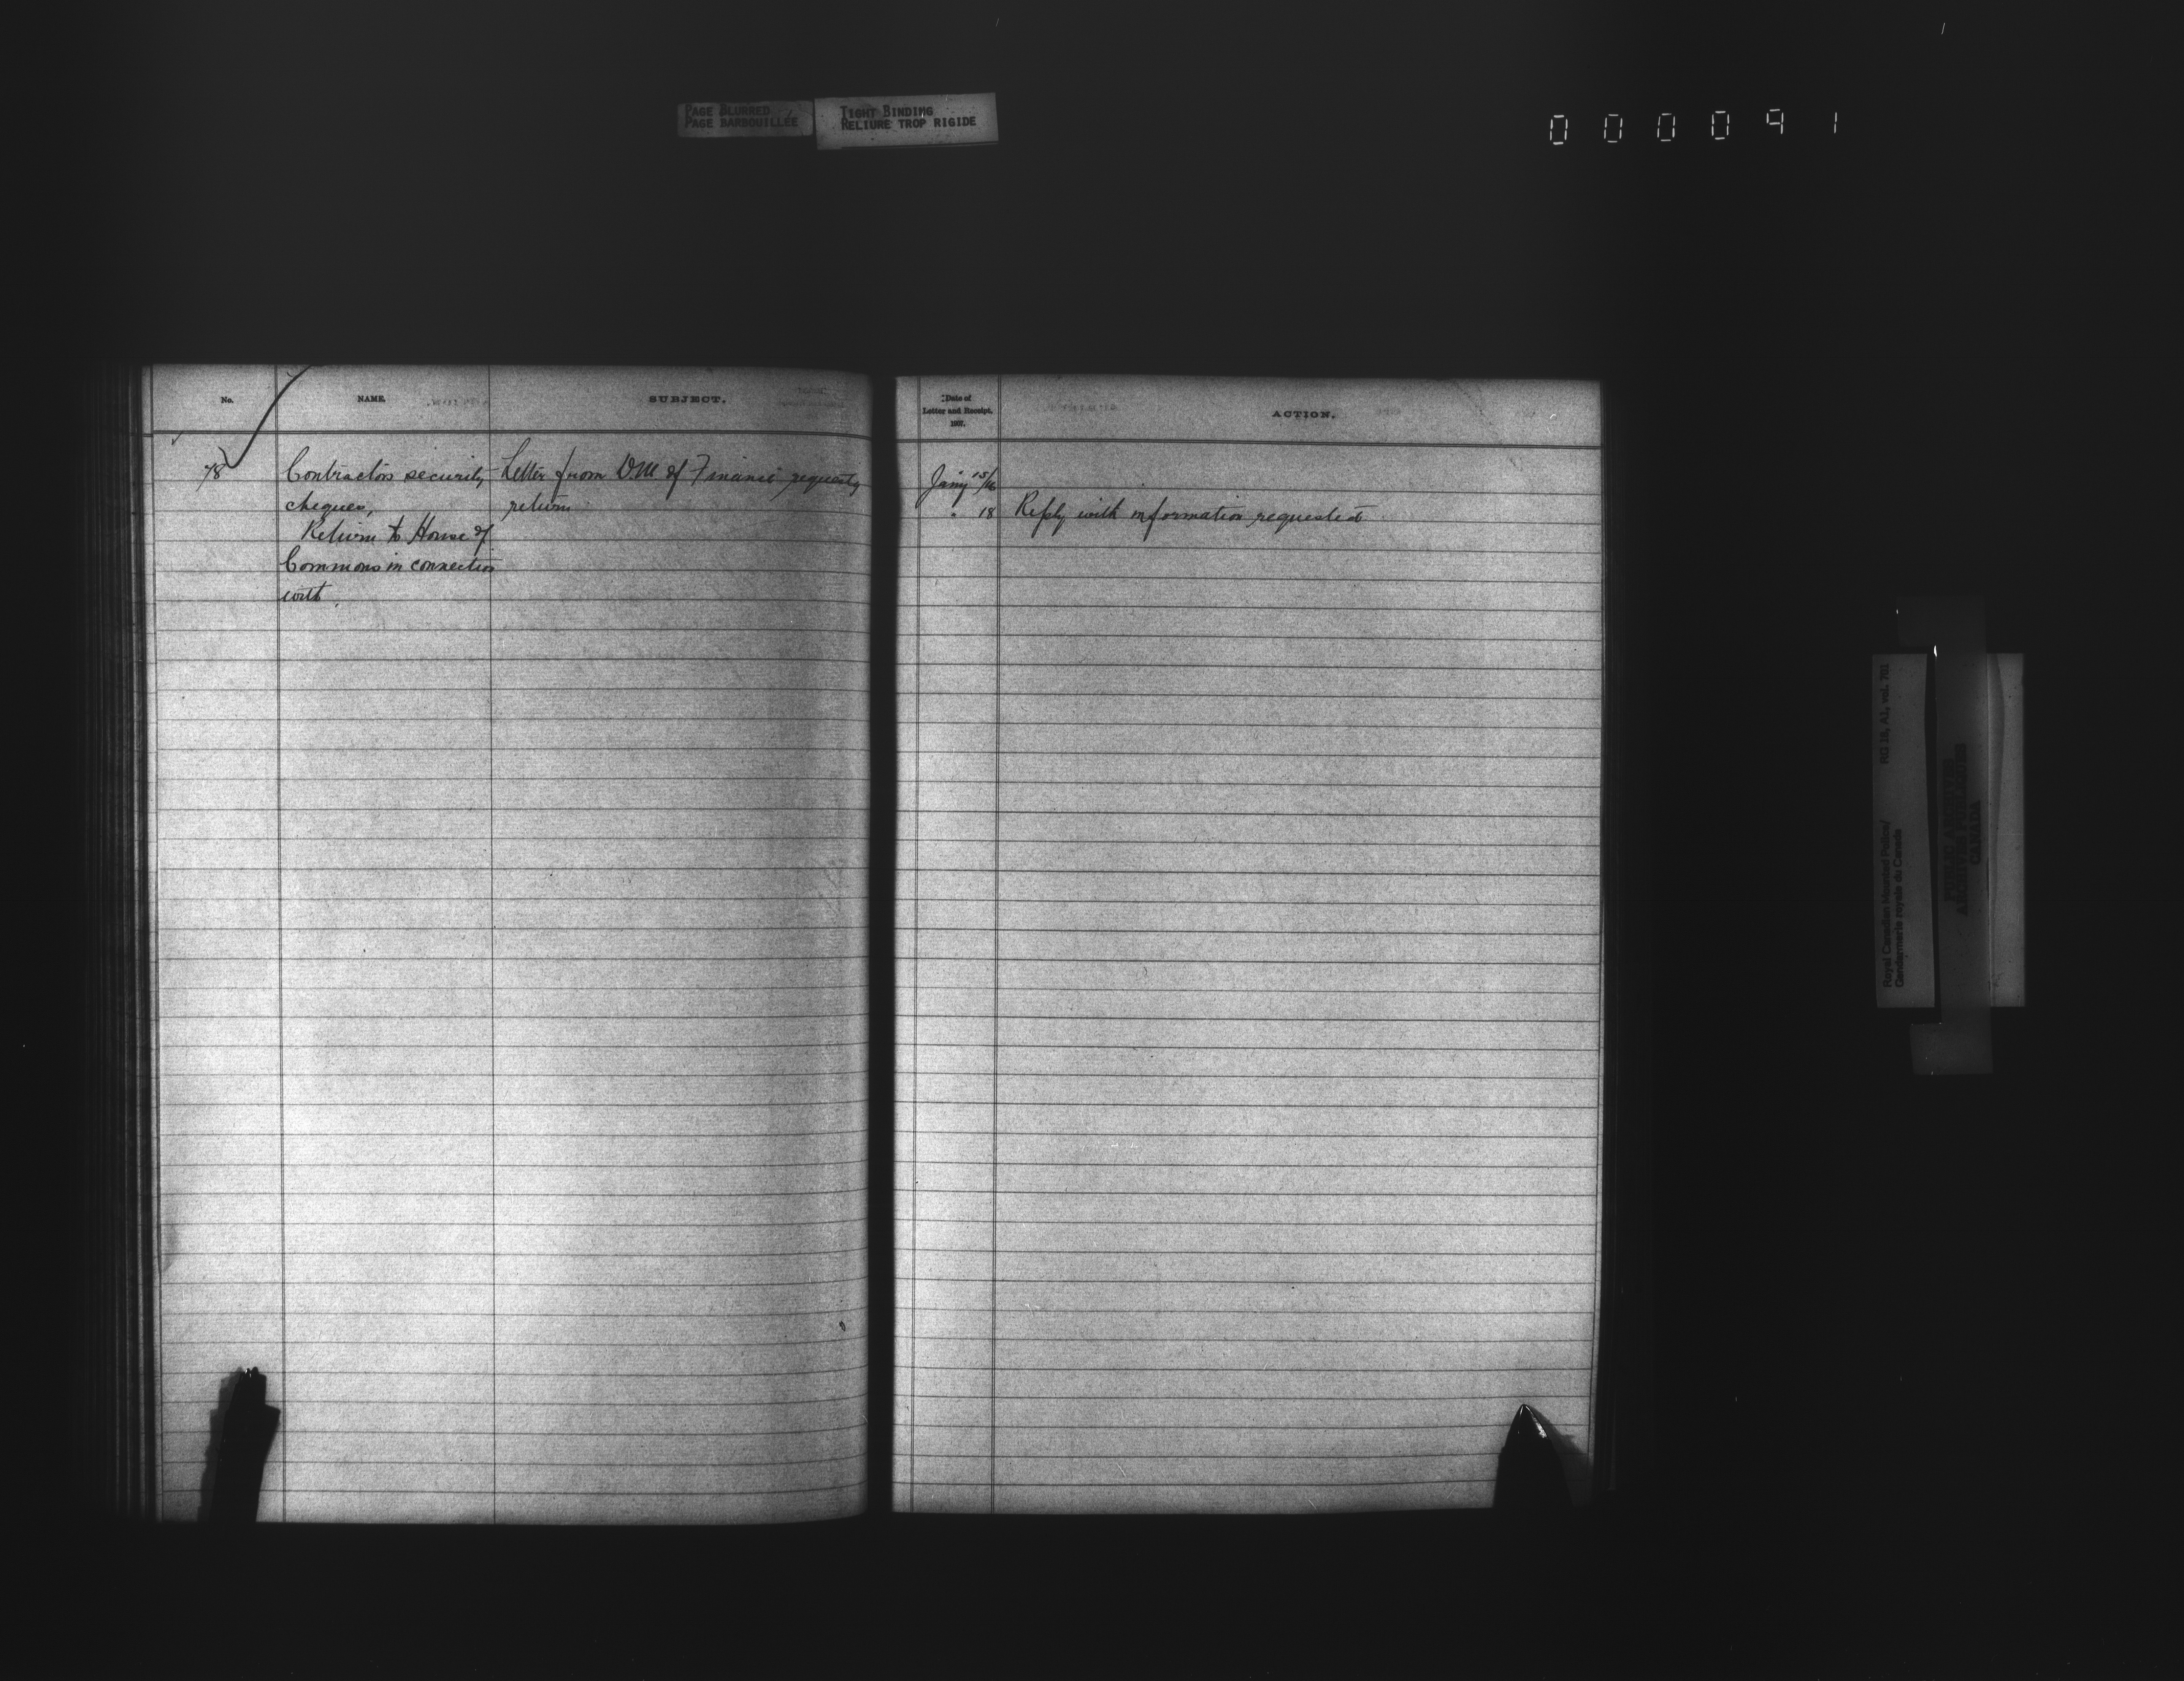 PAGE BLURRED
PAGE BARBOUILLÉE
TIGHT BINDING
RELIURE TROP RIGIDE
000091
No.
NAME.
SUBJECT.
Date of
Letter and Receipt.
1907.
ACTION.
78
Contractors security
cheques,
Return to House of
Commons in connection
with.
Letter from D.M. of Finance requestg
return
Jany 15/16
" 18 Reply with information requested
Royal Canadian Mounted Police/ RG 18, A1, vol. 701
Gendarmerie royale du Canada
PUBLIC ARCHIVES
ARCHIVES PUBLIQUES
CANADA